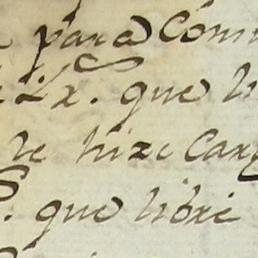 para Com
que li
le hize Carg
que libre